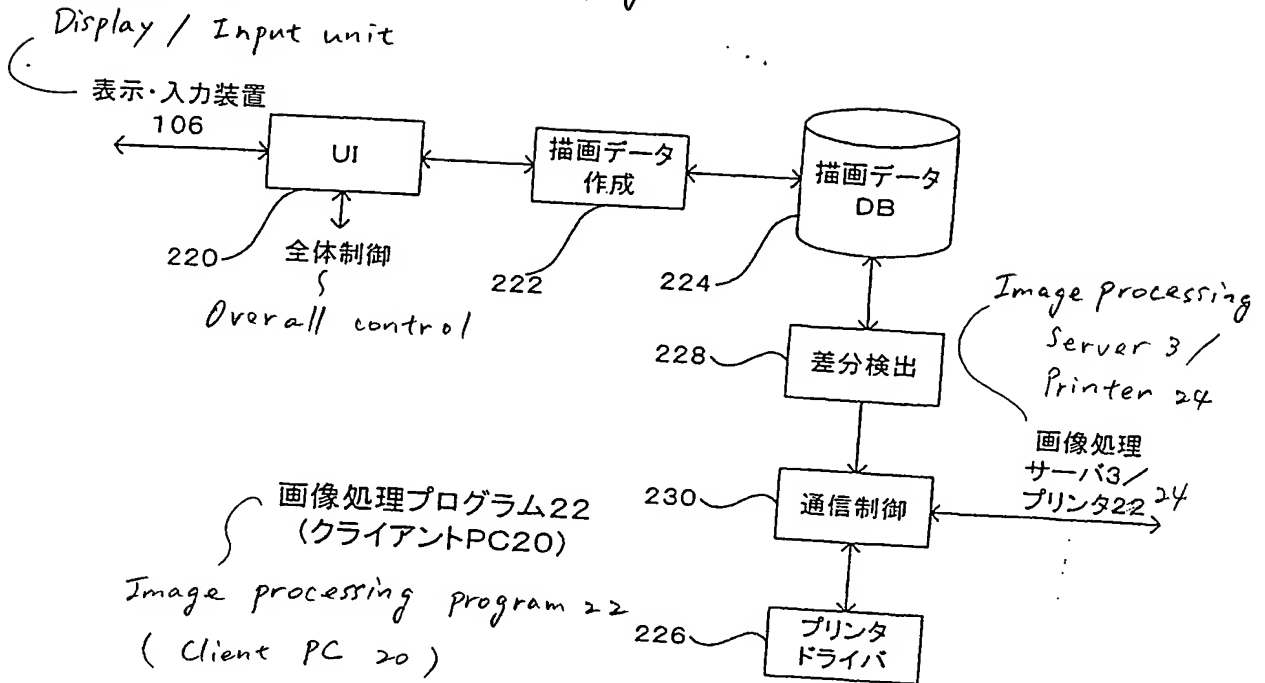 Display / Input unit
表示・入力装置
106
UI
描画データ
作成
描画データ
DB
220
全体制御
222
224
Overall control
Image processing
Server 3 /
Printer 24
228
差分検出
画像処理
サーバ3/
プリンタ22 24
230
通信制御
画像処理プログラム22
(クライアントPC20)
Image processing program 22
( Client PC 20 )
226
プリンタ
ドライバ